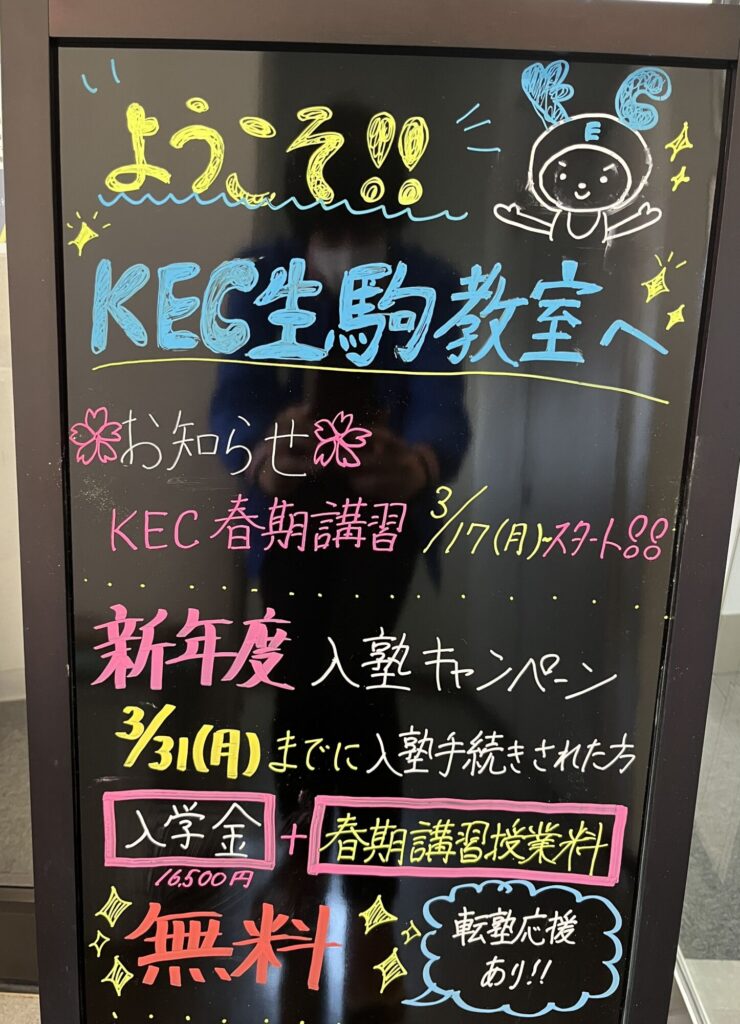 ようこそ!!
K E C
KEC生駒教室へ
お知らせ
KEC 春期講習 3/17(月)~スタート!!
新年度 入塾キャンペーン
3/31(月)までに入塾手続きされた方
入学金 + 春期講習授業料
16,500円
無料
転塾応援
あり!!